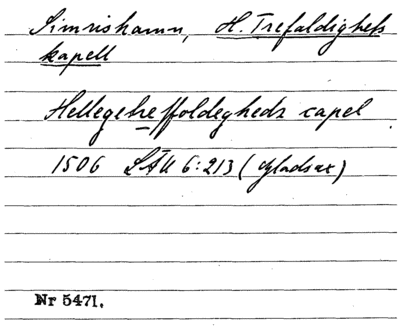 Simrishamn, H. Trefaldighets
kapell
Hellegetreffoldegheds capel
1506 SÄU 6:213 (Gladsax)
Nr 5471.